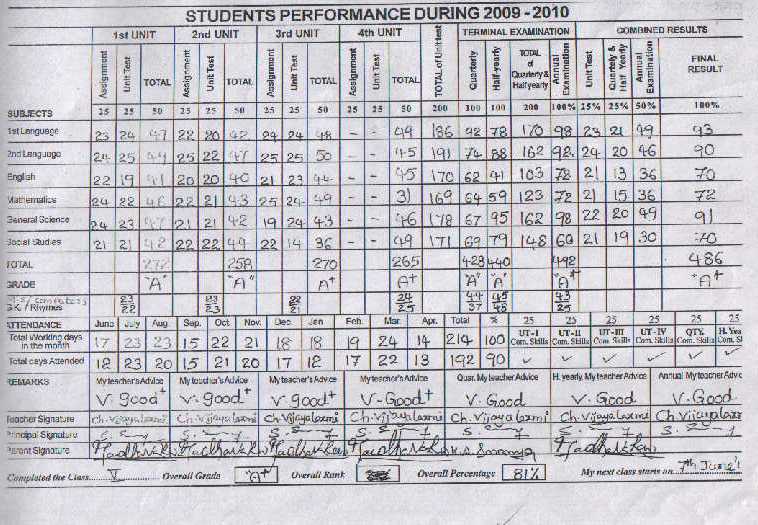 STUDENTS PERFORMANCE DURING 2009 - 2010
1st UNIT 2nd UNIT 3rd UNIT 4th UNIT TOTAL of Unit test TERMINAL EXAMINATION COMBINED RESULTS
Assignment Unit Test TOTAL Assignment Unit Test TOTAL Assignment Unit Test TOTAL Assignment Unit Test TOTAL Quarterly Half-yearly TOTAL of Quarterly & Half yearly Annual Examination Unit Test Quarterly & Half Yearly Annual Examination FINAL RESULT
SUBJECTS 25 25 50 25 25 50 25 25 50 25 25 50 200 100 100 200 100% 25% 25% 50% 100%
1st Language 23 24 47 22 20 42 24 24 48 - - 49 186 92 78 170 98 23 21 49 93
2nd Language 24 25 49 25 22 47 25 25 50 - - 45 191 74 88 162 92 24 20 46 90
English 22 19 41 20 20 40 21 23 44 - - 45 170 62 41 103 72 21 13 36 70
Mathematics 24 22 46 22 21 43 25 24 49 - - 31 169 64 59 123 72 21 15 36 72
General Science 24 23 47 21 21 42 19 24 43 - - 46 178 67 95 162 98 22 20 49 91
Social Studies 21 21 42 22 22 44 22 14 36 - - 49 171 69 79 148 60 21 19 30 70
TOTAL 272 258 270 265 428 440 492 486
GRADE "A" "A" A+ A+ "A" "A" "A+" "A+"
G.K. / Rhymes 23 22 23 23 22 21 24 25 44 37 45 48 43 25
ATTENDANCE June July Aug. Sep. Oct Nov. Dec. Jan Feb. Mar. Apr. Total % 25 25 25 25 25 25
Total Working days in the month 17 23 23 15 22 21 18 18 19 24 14 214 100 UT-I Com. Skills UT-II Com. Skills UT-III Com. Skills UT-IV Com. Skills QTY. Com. Skills H. Yes Com. Sk
Total days Attended 12 23 20 15 21 20 17 12 17 22 13 192 90 ✓ ✓ ✓ ✓ ✓ ✓
REMARKS My teacher's Advice My teacher's Advice My teacher's Advice My teacher's Advice Quar. My teacher Advice H. yearly. My teacher Advice Annual My teacher Advic
V. good+ V. good+ V. good+ V. Good+ V. Good V. Good V. Good
Teacher Signature Ch. Vijayalaxmi Ch. Vijayalaxmi Ch. Vijayalaxmi Ch. Vijayalaxmi Ch. Vijayalaxmi Ch. Vijayalaxmi Ch Vijayalaxmi
Principal Signature
Parent Signature
Completed the Class V Overall Grade "A+" Overall Rank Overall Percentage 81% My next class starts on 7th June